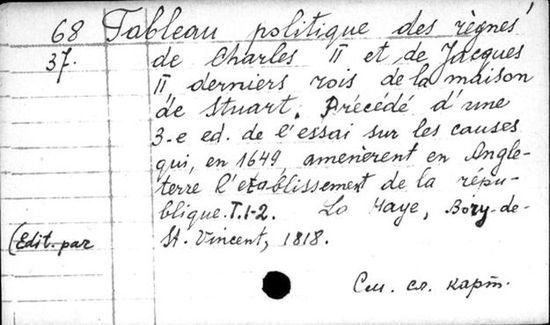 68 Tableau politique des règnes
37. de Charles II et de Jacques
II, derniers rois de la maison
de Stuart. Précédé d'une
3-e ed. de l'essai sur les causes
qui, en 1649, amenèrent en Angle-
terre l'etablissement de la répu-
blique. T.1-2. La Haye, Bory-de-
(Edit. par St. Vincent, 1818.
См. сл. карт.